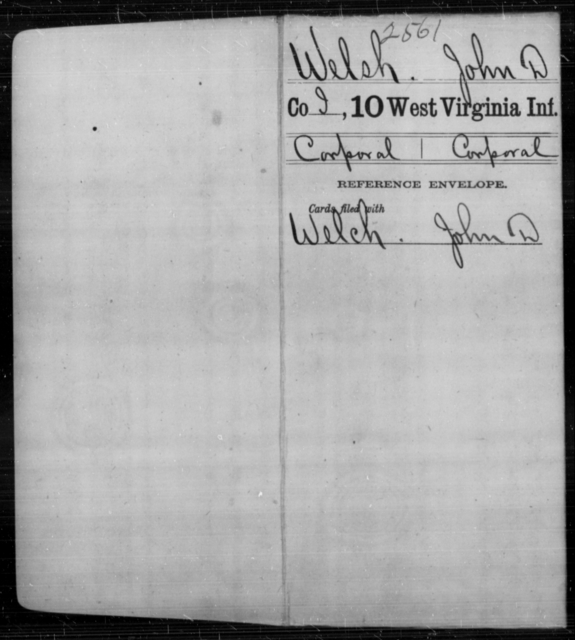 2561
Welsh. John D
Co I, 10 West Virginia Inf.
Corporal | Corporal
REFERENCE ENVELOPE.
Cards filed with
Welch. John D